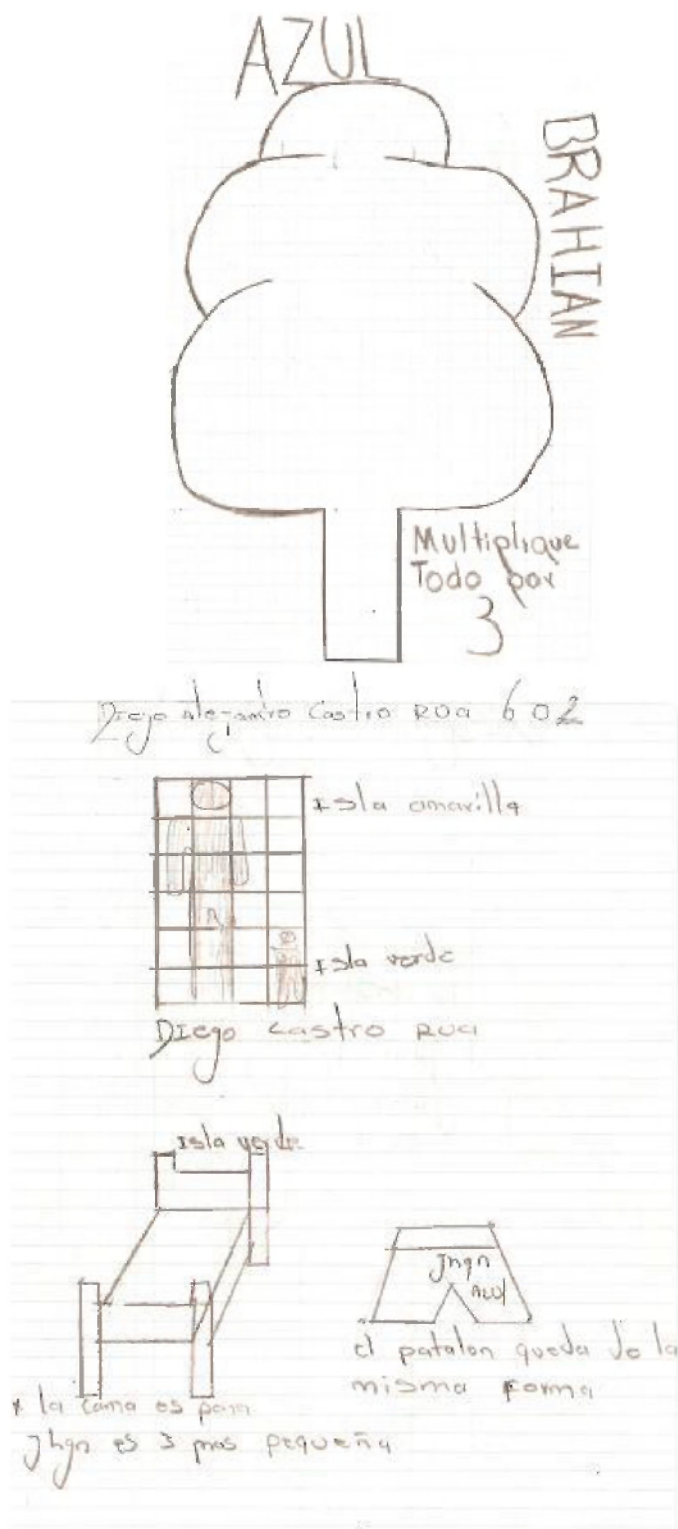 AZUL
BRAHIAN
Multiplique
Todo por
3
Diego Alejandro Castro ROa 602
Isla amarilla
Isla verde
DIego Castro ROa
Isla verde
Jhqn
AZUl
el patalon queda de la
misma forma
* la cama es para
Jhqn es 3 mas pequeña